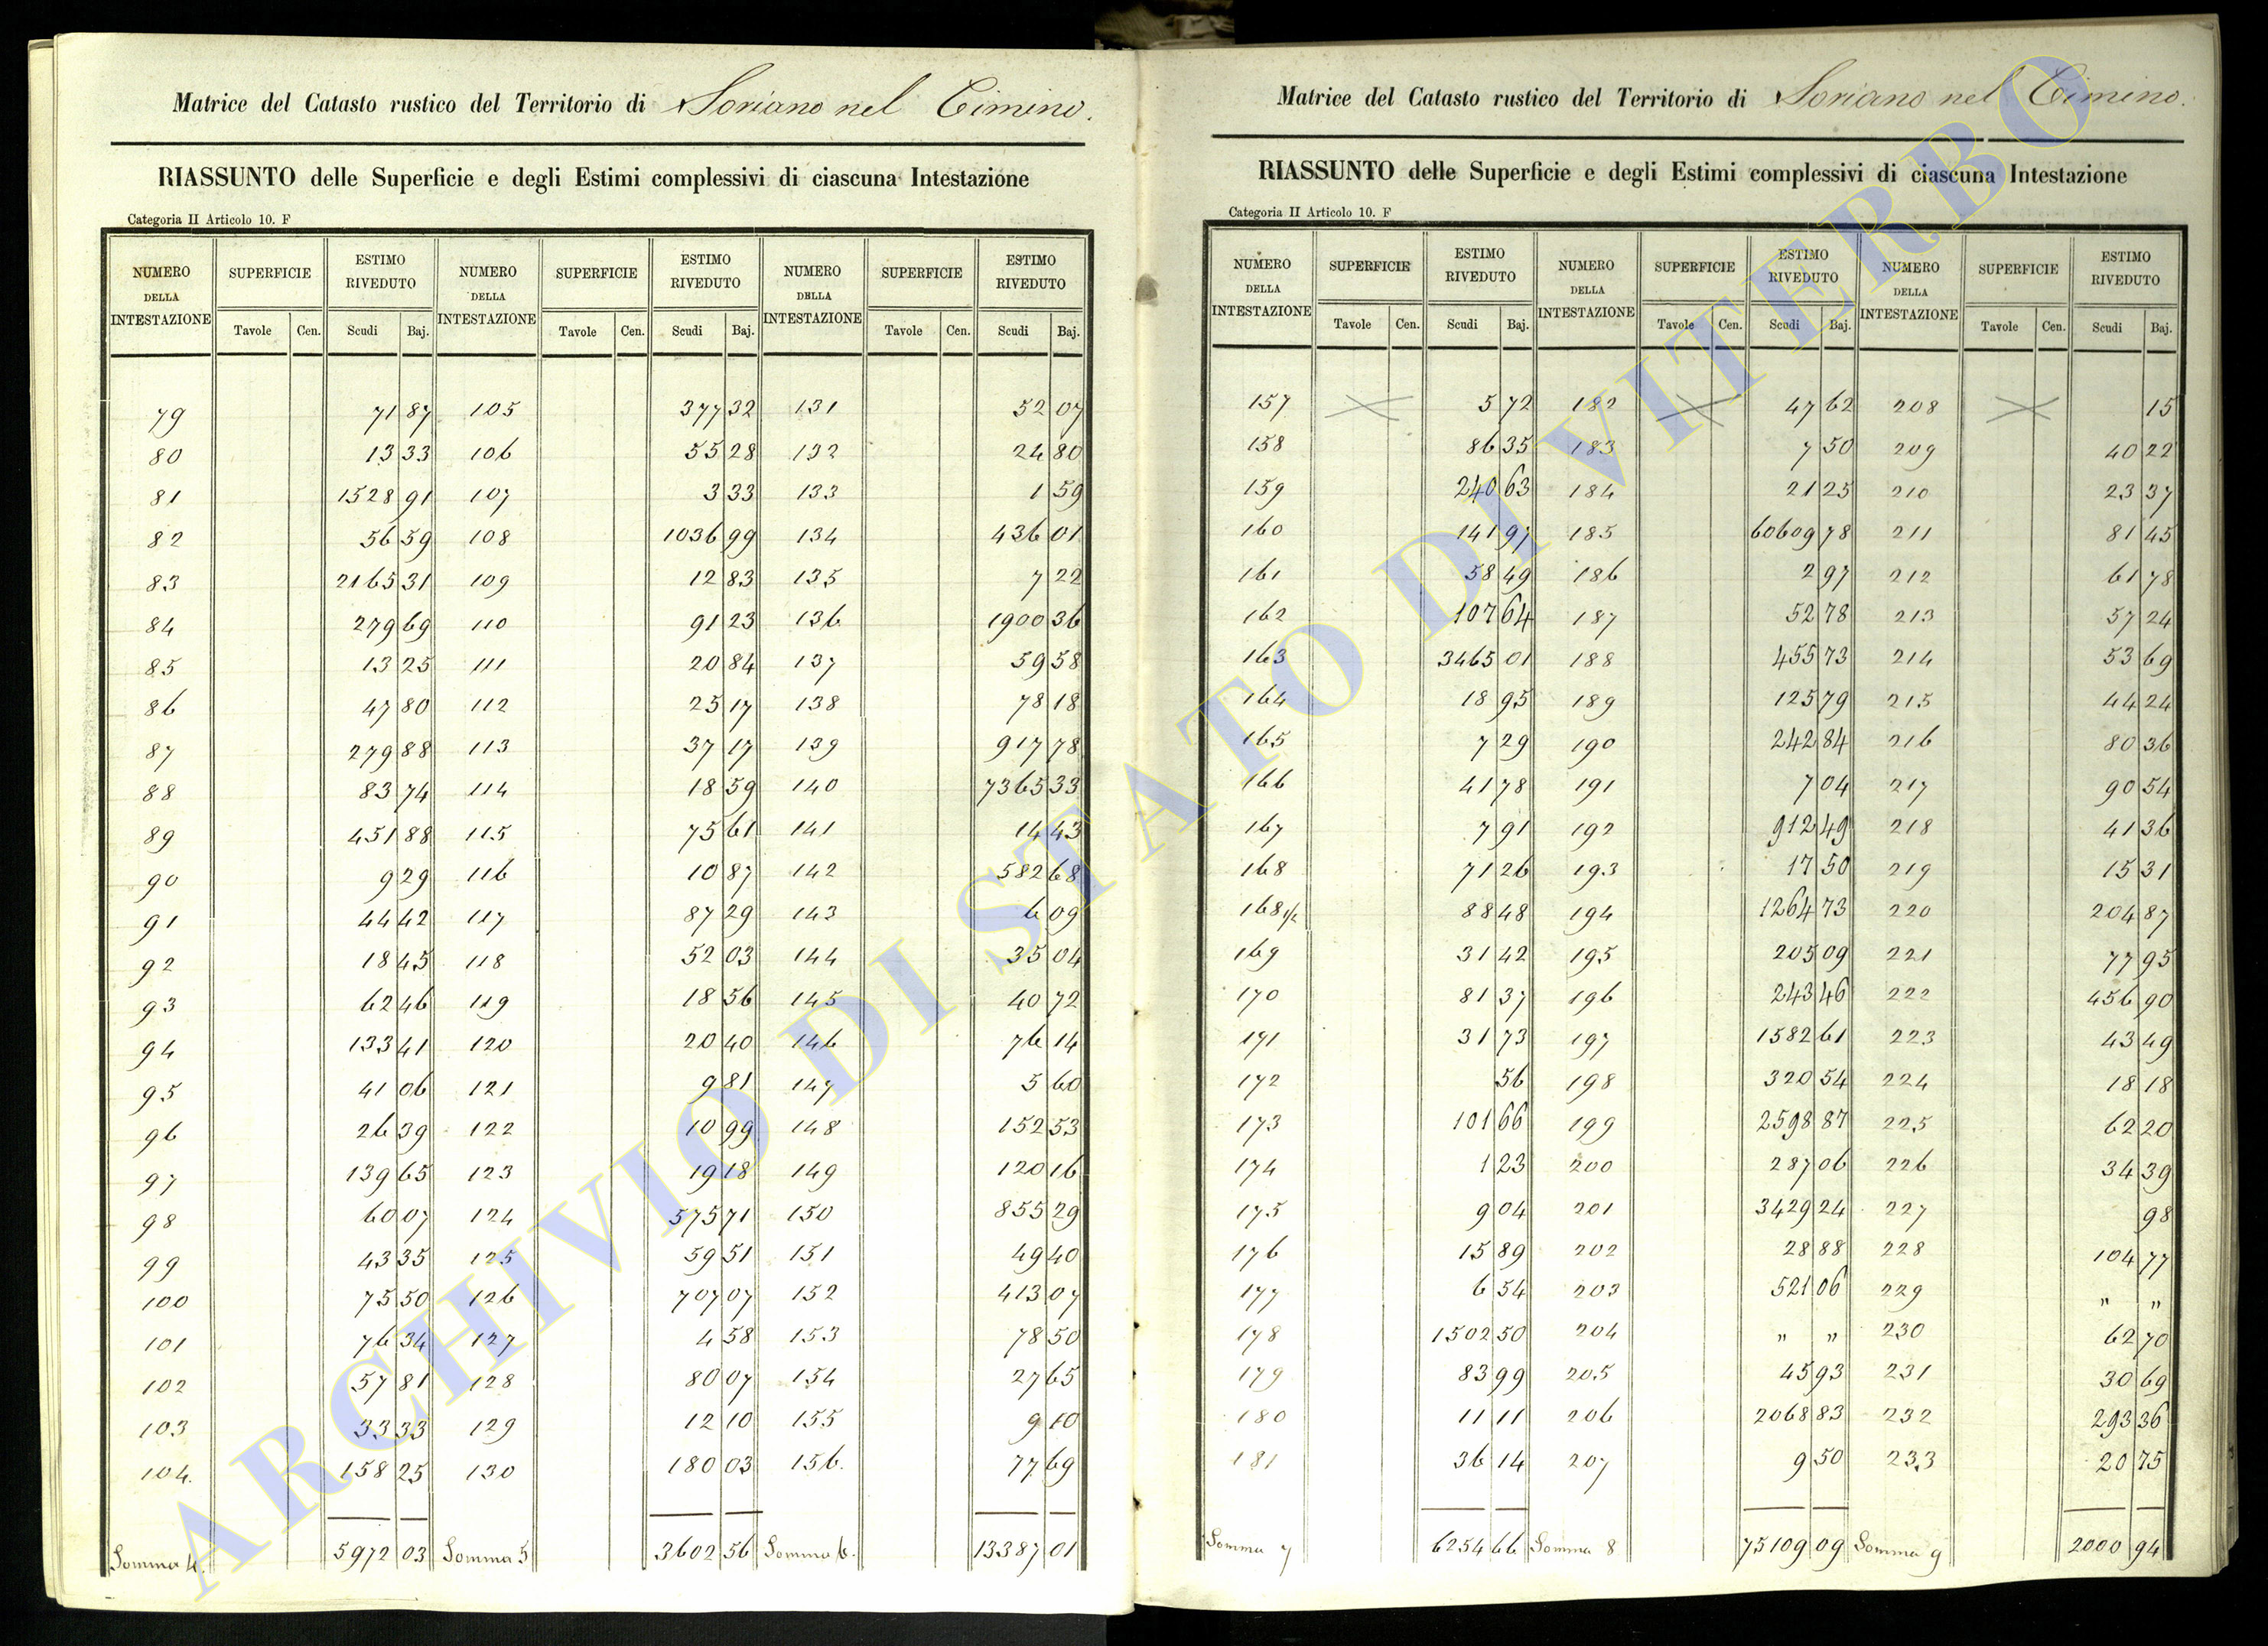 Matrice del Catasto rustico del Territorio di Soriano nel Cimino.
RIASSUNTO delle Superficie e degli Estimi complessivi di ciascuna Intestazione
Categoria II Articolo 10. F
NUMERO DELLA INTESTAZIONE SUPERFICIE ESTIMO RIVEDUTO NUMERO DELLA INTESTAZIONE SUPERFICIE ESTIMO RIVEDUTO NUMERO DELLA INTESTAZIONE SUPERFICIE ESTIMO RIVEDUTO
Tavole Cen. Scudi Baj. Tavole Cen. Scudi Baj. Tavole Cen. Scudi Baj.
79 71 87 105 377 32 131 52 07
80 13 33 106 55 28 132 24 80
81 1528 91 107 3 33 133 1 59
82 56 59 108 1036 99 134 436 01
83 2165 31 109 12 83 135 7 22
84 279 69 110 91 23 136 1900 36
85 13 25 111 20 84 137 59 58
86 47 80 112 25 17 138 78 18
87 279 88 113 37 17 139 917 78
88 83 74 114 18 59 140 7365 33
89 451 88 115 75 61 141 14 43
90 9 29 116 10 87 142 582 68
91 44 42 117 87 29 143 6 09
92 18 45 118 52 03 144 35 04
93 62 46 119 18 56 145 40 72
94 133 41 120 20 40 146 76 14
95 41 06 121 9 81 147 5 60
96 26 39 122 10 99 148 152 53
97 139 65 123 19 18 149 120 16
98 60 07 124 575 71 150 855 29
99 43 35 125 59 51 151 49 40
100 75 50 126 707 07 152 413 07
101 76 34 127 4 58 153 78 50
102 57 81 128 80 07 154 27 65
103 33 33 129 12 10 155 9 10
104. 158 25 130 180 03 156. 77 69
Somma 4. 5972 03 Somma 5 3602 56 Somma 6. 13387 01
Matrice del Catasto rustico del Territorio di Soriano nel Cimino.
RIASSUNTO delle Superficie e degli Estimi complessivi di ciascuna Intestazione
Categoria II Articolo 10. F
NUMERO DELLA INTESTAZIONE SUPERFICIE ESTIMO RIVEDUTO NUMERO DELLA INTESTAZIONE SUPERFICIE ESTIMO RIVEDUTO NUMERO DELLA INTESTAZIONE SUPERFICIE ESTIMO RIVEDUTO
Tavole Cen. Scudi Baj. Tavole Cen. Scudi Baj. Tavole Cen. Scudi Baj.
157 5 72 182 47 62 208 15
158 86 35 183 7 50 209 40 22
159 240 63 184 21 25 210 23 37
160 141 97 185 60609 78 211 81 45
161 58 49 186 2 97 212 61 78
162 107 64 187 52 78 213 57 24
163 3465 01 188 455 73 214 53 69
164 18 95 189 125 79 215 44 24
165 7 29 190 242 84 216 80 36
166 41 78 191 7 04 217 90 54
167 7 91 192 912 49 218 41 36
168 71 26 193 17 50 219 15 31
168 1/2 88 48 194 1264 73 220 204 87
169 31 42 195 205 09 221 77 95
170 81 37 196 243 46 222 456 90
171 31 73 197 1582 61 223 43 49
172 56 198 320 54 224 18 18
173 101 66 199 2598 87 225 62 20
174 1 23 200 287 06 226 34 39
175 9 04 201 3429 24 227 98
176 15 89 202 28 88 228 104 77
177 6 54 203 521 06 229 " "
178 1502 50 204 " " 230 62 70
179 83 99 205 45 93 231 30 69
180 11 11 206 2068 83 232 293 36
181 36 14 207 9 50 233 20 75
Somma 7 6254 66 Somma 8 75109 09 Somma 9 2000 94
ARCHIVIO DI STATO DI VITERBO